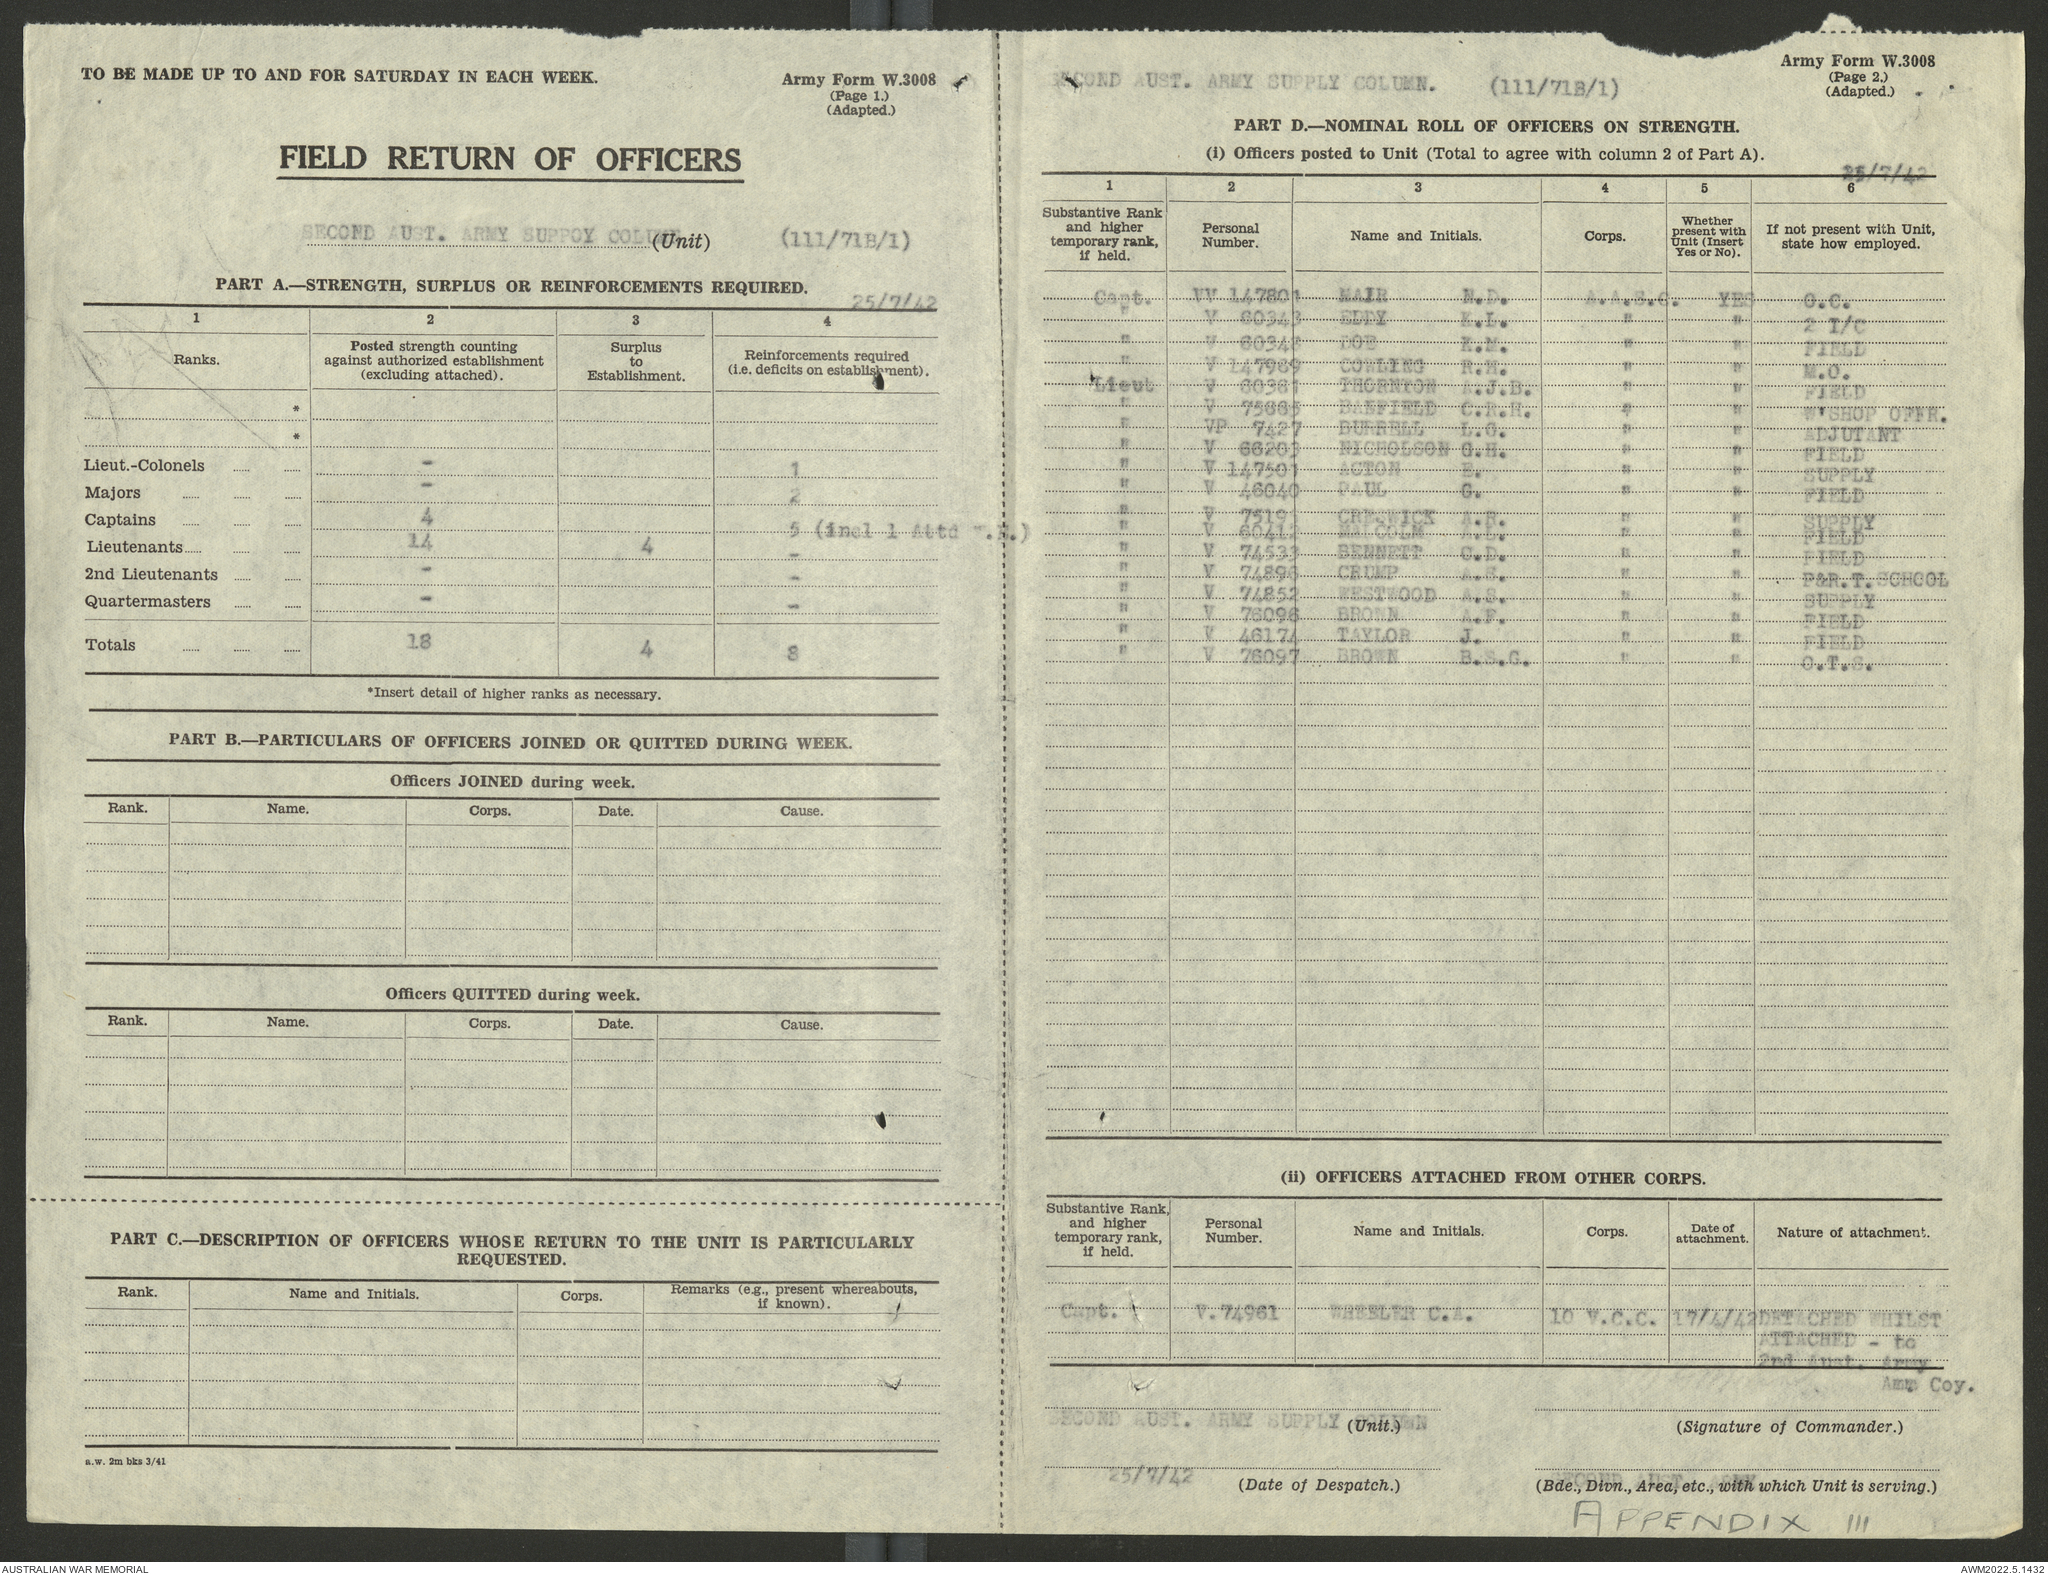 TO BE MADE UP TO AND FOR SATURDAY IN EACH WEEK.
Army Form W.3008
(Page 1.)
(Adapted.)
FIELD RETURN OF OFFICERS
SECOND AUST. ARMY SUPPOY COLUMN (Unit) (111/71B/1)
PART A.—STRENGTH, SURPLUS OR REINFORCEMENTS REQUIRED.
25/7/42
1 2 3 4
Ranks. Posted strength counting against authorized establishment (excluding attached). Surplus to Establishment. Reinforcements required (i.e. deficits on establishment).
*
*
Lieut.-Colonels ..... ..... - 1
Majors ..... ..... ..... - 2
Captains ..... ..... ..... 4 5 (incl 1 Attd
Lieutenants..... ..... ..... 14 4 -
2nd Lieutenants ..... ..... - -
Quartermasters ..... ..... - -
Totals ..... ..... ..... 18 4 8
*Insert detail of higher ranks as necessary.
PART B.—PARTICULARS OF OFFICERS JOINED OR QUITTED DURING WEEK.
Officers JOINED during week.
Rank. Name. Corps. Date. Cause.
Officers QUITTED during week.
Rank. Name. Corps. Date. Cause.
PART C.—DESCRIPTION OF OFFICERS WHOSE RETURN TO THE UNIT IS PARTICULARLY
REQUESTED.
Rank. Name and Initials. Corps. Remarks (e.g., present whereabouts, if known).
a.w. 2m bks 3/41
Army Form W.3008
(Page 2.)
(Adapted.)
SECOND AUST. ARMY SUPPLY COLUMN. (111/71B/1)
PART D.—NOMINAL ROLL OF OFFICERS ON STRENGTH.
(i) Officers posted to Unit (Total to agree with column 2 of Part A).
25/7/42
1 2 3 4 5 6
Substantive Rank and higher temporary rank, if held. Personal Number. Name and Initials. Corps. Whether present with Unit (Insert Yes or No). If not present with Unit, state how employed.
Capt. VV 147801 MAIR N.D. A.A.S.C. YES O.C.
" V 60343 EDDY K.L. " " 2 I/C
" V 60346 DOE K.M. " " FIELD
" V 147989 COWLING R.H. " " M.O.
Lieut V 60361 THORNTON A.J.B. " " FIELD
" V 75885 BANFIELD C.R.H. " " W'SHOP OFFR.
" VP 7427 BURRELL L.G. " " ADJUTANT
" V 66203 NICHOLSON G.H. " " FIELD
" V 147501 ACTON E. " " SUPPLY
" V 46040 PAUL G. " " FIELD
" V 75191 CRESWICK A.R. " " SUPPLY
" V 60412 MALCOLM A.L. " " FIELD
" V 74533 BENNETT C.D. " " FIELD
" V 74896 CRUMP A.E. " " P&R.T.SCHOOL
" V 74852 WESTWOOD A.S. " " SUPPLY
" V 76096 BROWN A.F. " " FIELD
" V 46174 TAYLOR J. " " FIELD
" V 76097 BROWN B.S.G. " " O.T.S.
(ii) OFFICERS ATTACHED FROM OTHER CORPS.
Substantive Rank, and higher temporary rank, if held. Personal Number. Name and Initials. Corps. Date of attachment. Nature of attachment.
Capt. V.74961 WHEELER C.A. 10 V.C.C. 17/4/42 DETACHED WHILST
ATTACHED - to
2nd Aust. Army
Amm Coy.
SECOND AUST. ARMY SUPPLY COLUMN (Unit.)
(Signature of Commander.)
25/7/42 (Date of Despatch.)
SECOND AUST. ARMY
(Bde., Divn., Area, etc., with which Unit is serving.)
APPENDIX III
AUSTRALIAN WAR MEMORIAL
AWM2022.5.1432